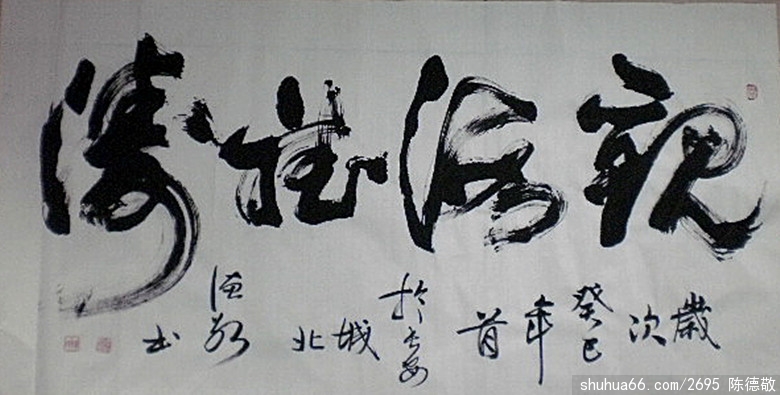 觀海聽濤
歲次癸巳年首於长安城北
德敬书
shuhua66.com/2695 陈德敬